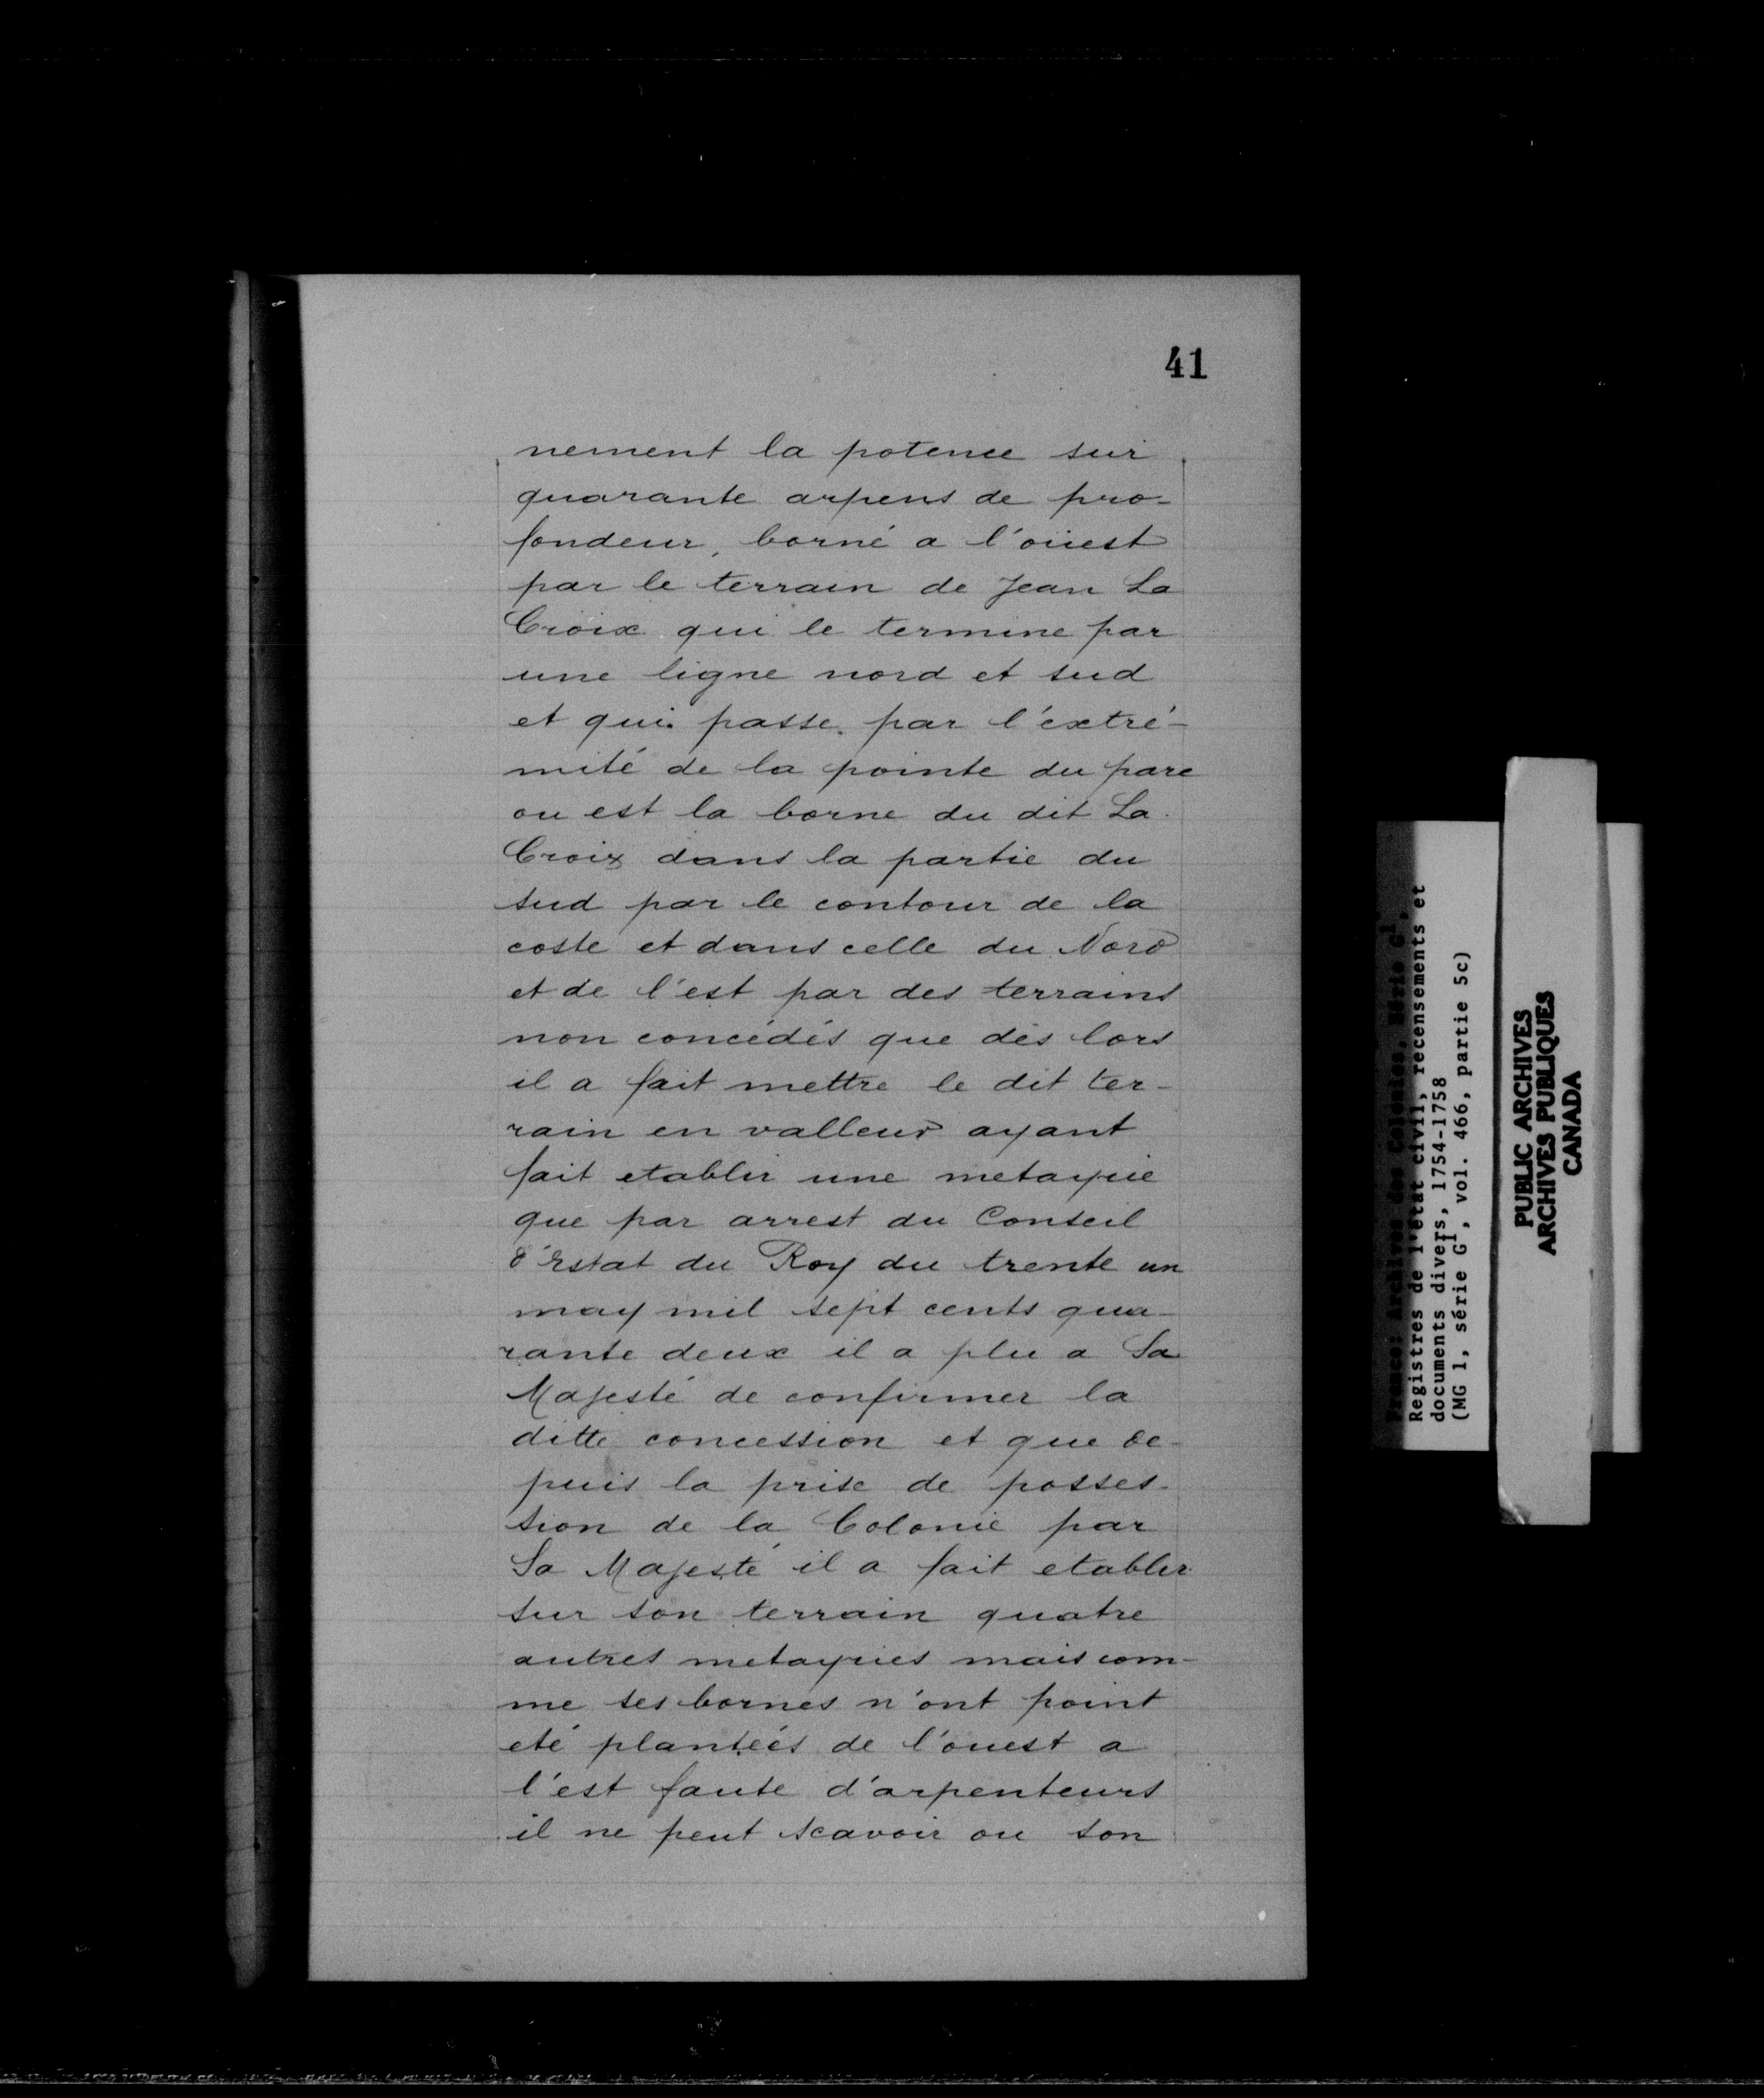 41
nement la potence sur
quarante arpens de pro-
fondeur, borné a l'oüest
par le terrain de Jean La
Croix qui le termine par
une ligne nord et sud
et qui passe par l'extré-
mité de la pointe du parc
ou est la borne du dit La
Croix dans la partie du
sud par le contour de la
coste et dans celle du Nord
et de l'est par des terrains
non concédés que dès lors
il a fait mettre le dit ter-
rain en valleur ayant
fait etablir une metayrie
que par arrest du Conseil
d'Estat du Roy du trente un
may mil sept cents qua-
rante deux il a plu a Sa
Majesté de confirmer la
ditte concession et que de-
puis la prise de posses-
sion de la Colonie par
Sa Majesté il a fait etablir
sur son terrain quatre
autres metayries mais com-
me ses bornes n'ont point
eté plantéés de l'ouest a
l'est faute d'arpenteurs
il ne peut scavoir ou son
France: Archives des Colonies, Série G1,
Registres de l'état civil, recensements et
documents divers, 1754-1758
(MG 1, série G1, vol. 466, partie 5c)
PUBLIC ARCHIVES
ARCHIVES PUBLIQUES
CANADA